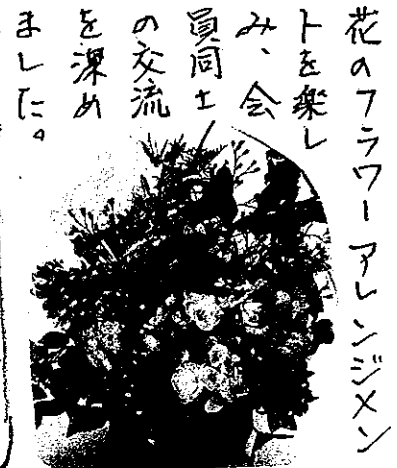 花のフラワーアレンジメン
トを楽し
み、会
員同士
の交流
を深め
ました。